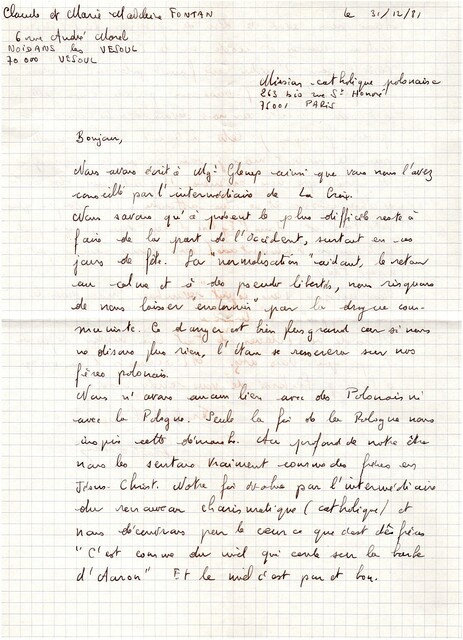 Claude et Marie Madeleine FONTAN le 31/12/81
6 rue André Morel
NOIDANS les VESOUL
70 000 VESOUL
Mission catholique polonaise
263 bis rue St Honoré
75001 PARIS
Bonjour,
Nous avons écrit à Mgr Glemp ainsi que vous nous l'avez
conseillé par l'intermédiaire de La Croix.
Nous savons qu'à présent le plus difficile reste à
faire de la part de l'Occident, surtout en ces
jours de fête. La "normalisation" aidant, le retour
au calme et à des pseudo libertés, nous risquons
de nous laisser "endormir" par la drogue com-
muniste. Ce danger est bien plus grand car si nous
ne disons plus rien, l'étau se resserrera sur nos
frères polonais.
Nous n'avons aucun lien avec des Polonais ni
avec la Pologne. Seule la foi de la Pologne nous
inspire cette démarche. Au profond de notre être
nous les sentons vraiment comme des frères en
Jésus-Christ. Notre foi évolue par l'intermédiaire
du renouveau charismatique (catholique) et
nous découvrons par le cœur ce que c'est des frères
"C'est comme du miel qui coule sur la barbe
d'Aaron" Et le miel c'est pur et bon.